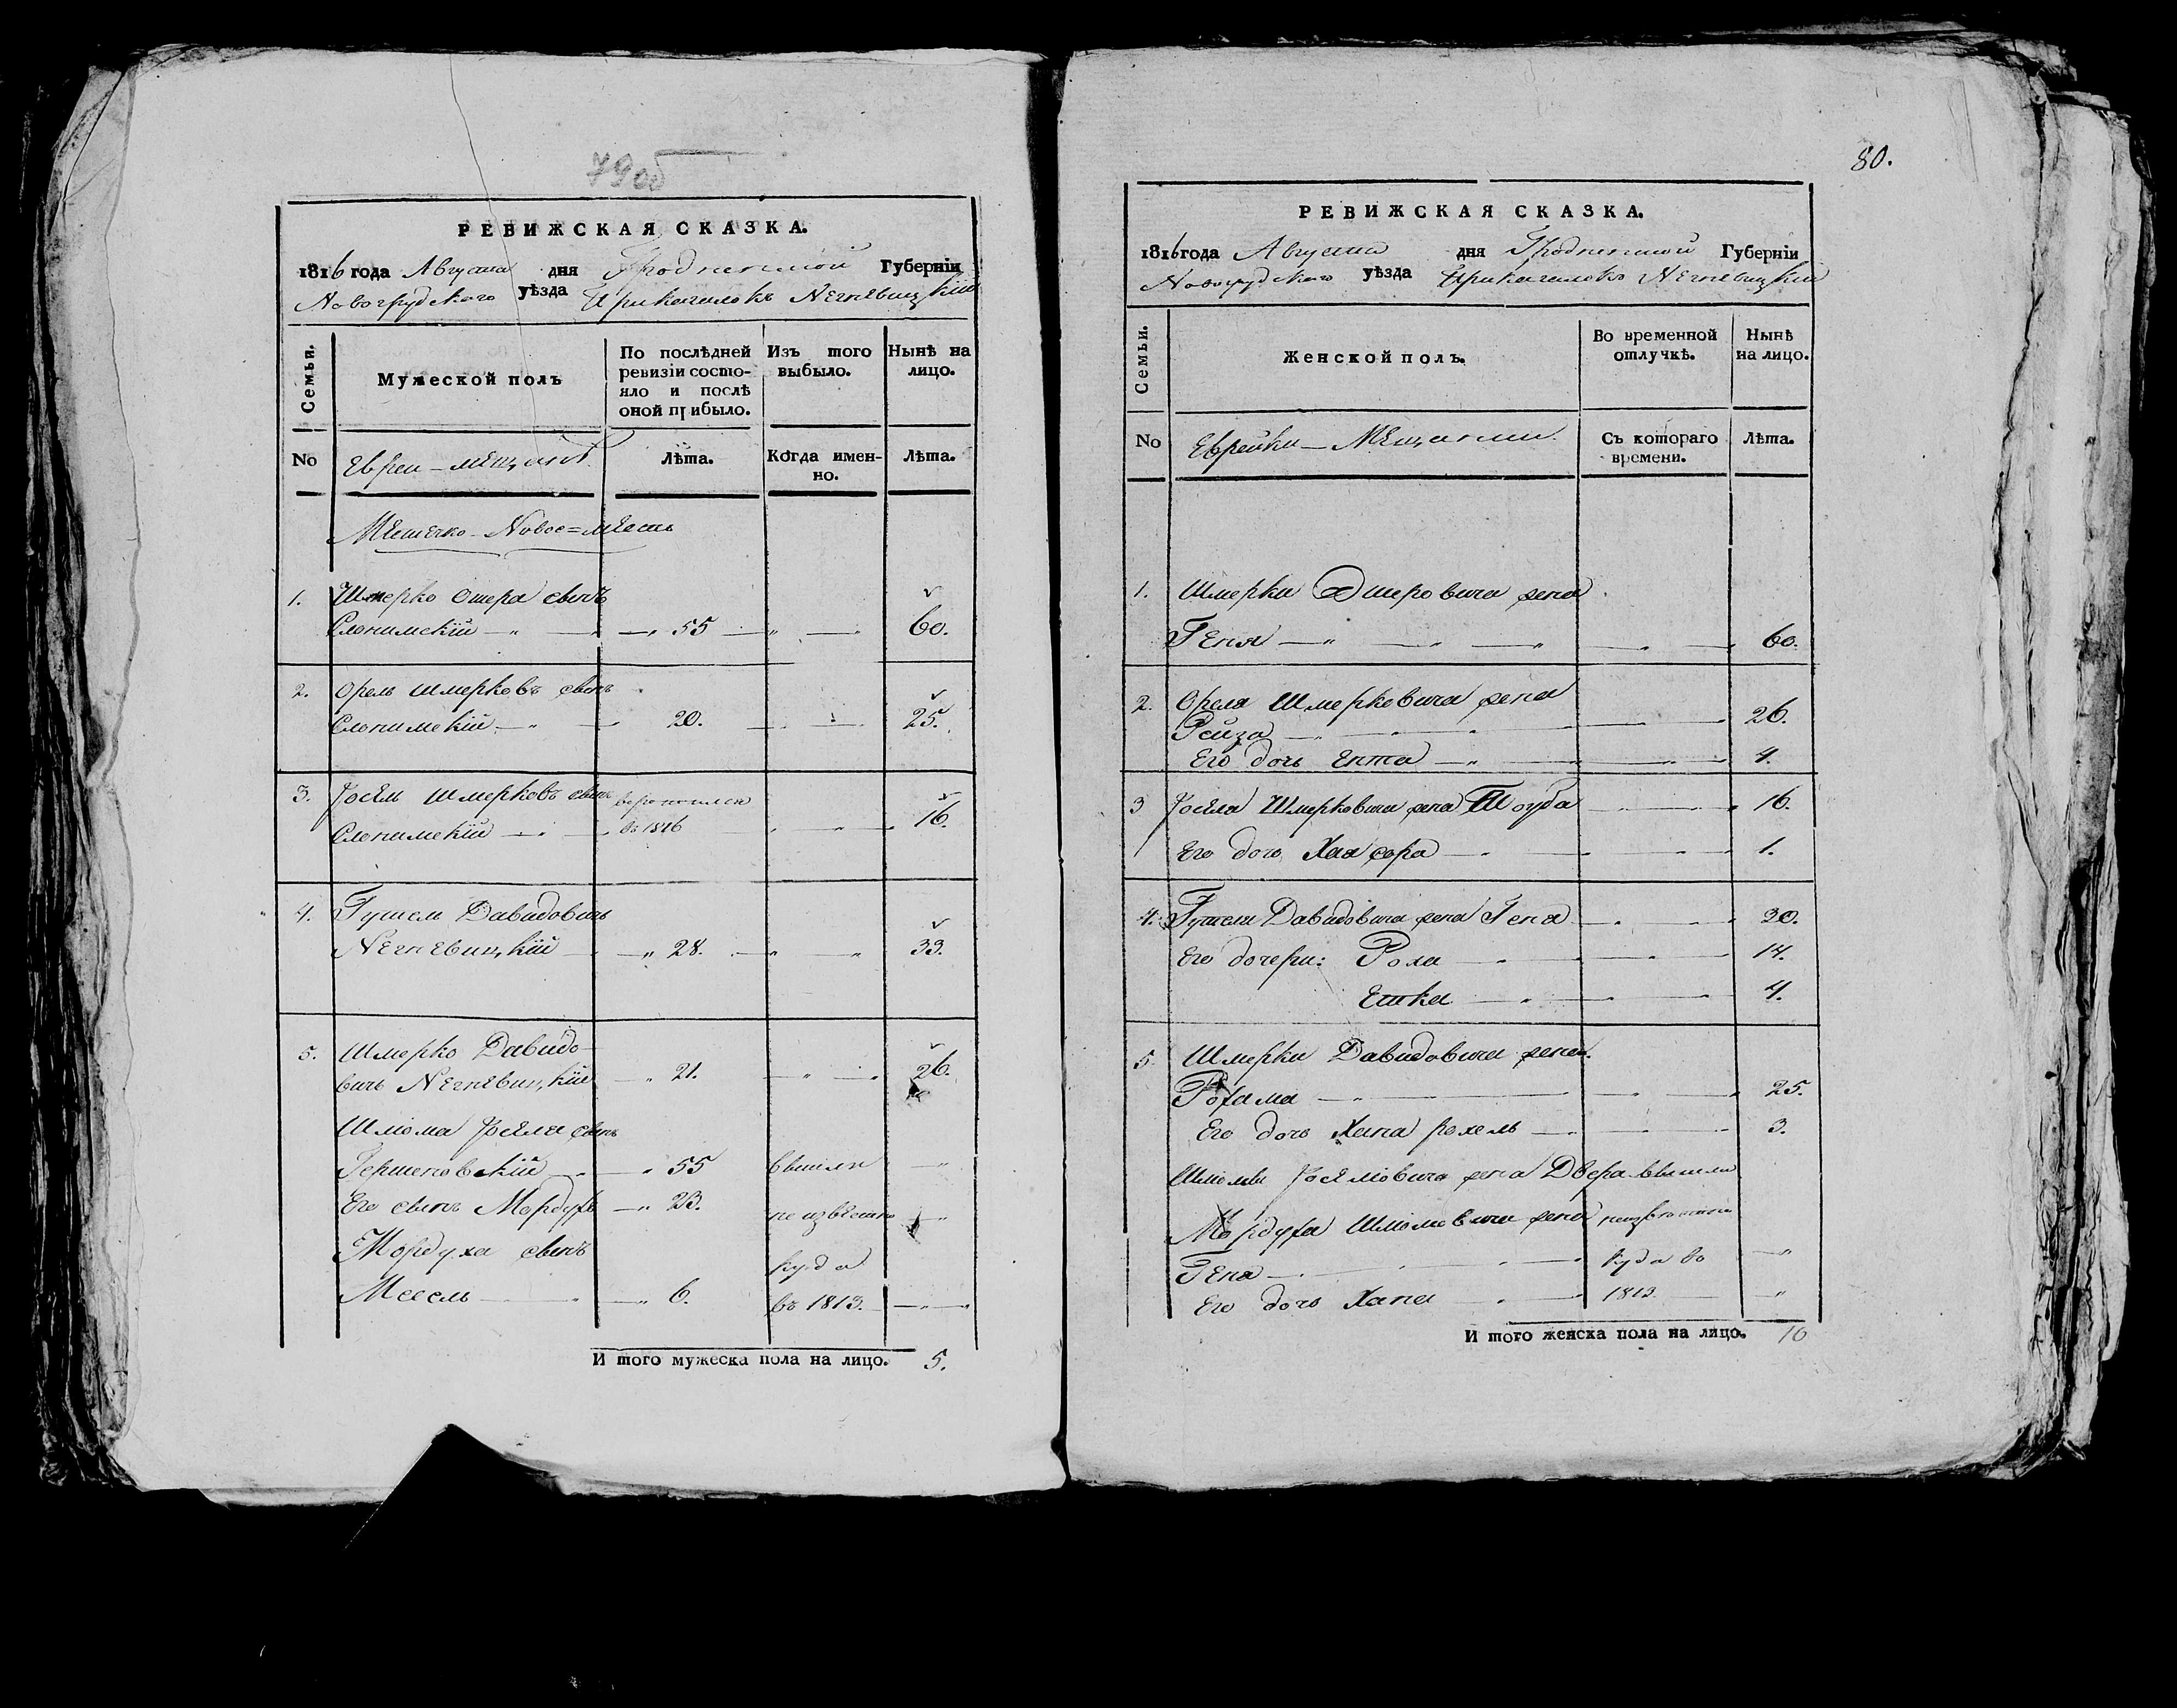 79об
РЕВИЖСКАЯ СКАЗКА.
1816 года Августа дня Гродненской Губерніи
Новогрудского уѣзда Прикагалокъ Негневицкій
Семьи.
Мужеской полъ
По послѣдней ревизіи состо-
яло и послѣ
оной прибыло.
Изъ того
выбыло.
Нынѣ на
лицо.
No
Евреи – мѣщанѣ
Лѣта.
Когда имен-
но.
Лѣта.
Мѣстечко Новое=мѣсто
1. Шмерко Ошера сынъ
Слонимскій 55 60.
2. Орель Шмерковъ сынъ
Слонимскій 20. 25.
3. Іосѣль Шмерковъ сынъ
Слонимскій во 1816 16.
4. Гушель Давидовичь
Негневицкій 28. 33.
5. Шмерко Давидо-
вичь Негневицкій 21. 26.
Шліома Іосѣля сынъ
Гершеновскій 55 вышли
Его сынъ Мордухъ 23. неизвѣстно
Мордуха сынъ куда
Меесль 6. въ 1813.
И того мужеска пола на лицо. 5.
80.
РЕВИЖСКАЯ СКАЗКА.
1816 года Августа дня Гродненской Губерніи
Новогрудского уѣзда Прикагалокъ Негневицкій
Семьи.
Женской полъ.
Во временной
отлучкѣ.
Нынѣ
на лицо.
No
Еврейки – Мѣщанки.
Съ котораго
времени.
Лѣта.
1. Шмерки Ошеровича жена
Геня 60.
2. Ореля Шмерковича жена
Рейза 26.
Его дочь Ента 4.
3 Іосѣла Шмерковича жена Тоуба 16.
Его дочь Хая сора 1.
4. Гушеля Давидовича жена Гена 30.
Его дочери: Рола 14.
Ешка 4.
5 Шмерки Давидовича жена
Рохама 25.
Его дочь Хана рохель 3.
Шліомы Іосѣлiовича жена Двера вышли
Мордуха Шліомовича жена неизвѣстно
Гена куда во
Его дочь Хана 1813.
И того женска пола на лицо. 10